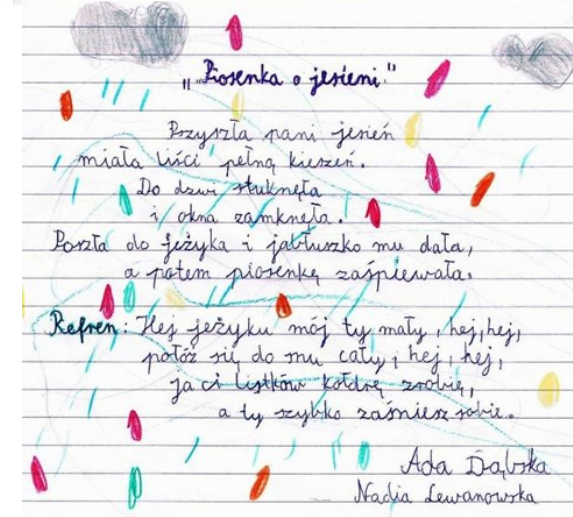 "Piosenka o jesieni."
Przyszła pani jesień
miała liści pełną kieszeń.
Do dzwi stuknęła
i okna zamknęła.
Poszła do jeżyka i jabłuszko mu dała,
a potem piosenkę zaśpiewała.
Refren: Hej jeżyku mój ty mały, hej, hej,
połóż się do mu cały, hej, hej,
ja ci listków kołdrę zrobię,
a ty szybko zaśniesz sobie.
Ada Dąbska
Nadia Lewanowska